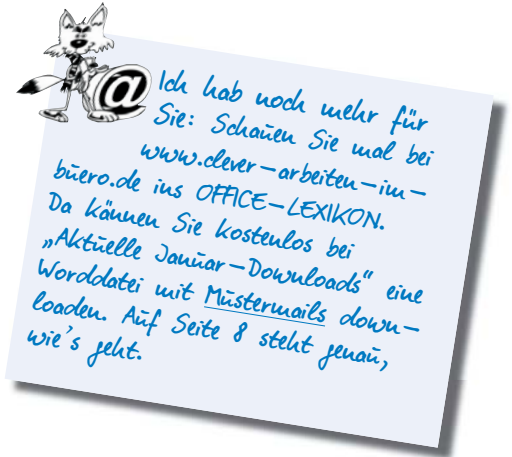 @
Ich hab noch mehr für
Sie: Schauen Sie mal bei
www.clever-arbeiten-im-
buero.de ins OFFICE-LEXIKON.
Da kännen Sie kostenlos bei
„Aktuelle Januar-Downloads“ eine
Worddatei mit Mustermails down-
loaden. Auf Seite 8 steht genau,
wie's geht.